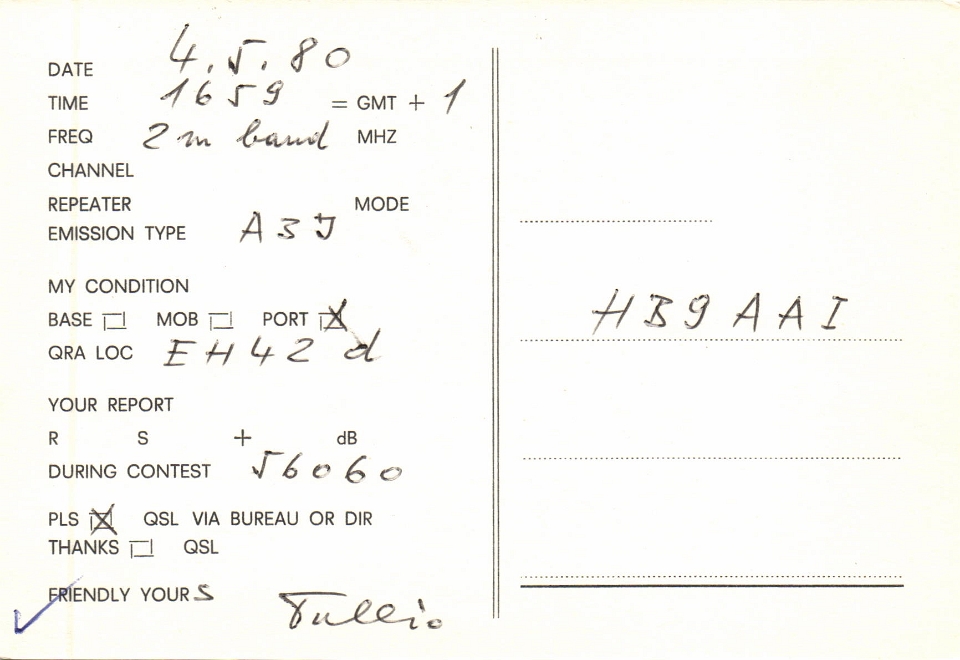 DATE 4.5.80
TIME 1659 = GMT + 1
FREQ 2 m band MHZ
CHANNEL
REPEATER MODE
EMISSION TYPE A3J
MY CONDITION
BASE MOB PORT X
QRA LOC EH42d
YOUR REPORT
R S + dB
DURING CONTEST 56060
PLS X QSL VIA BUREAU OR DIR
THANKS QSL
FRIENDLY YOURS
Tullio
HB9AAI